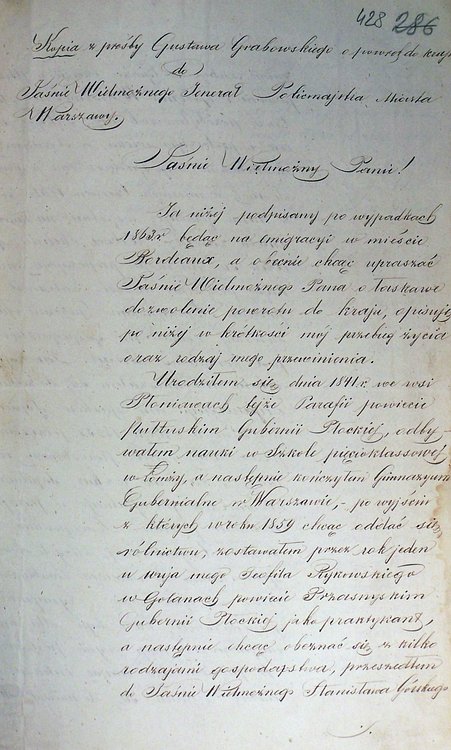 428 286
Kopia z prośby Gustawa Grabowskiego o powrót do kraju
do
Jaśnie Wielmożnego Jenerał Policmajstra Miasta
Warszawy.
Jaśnie Wielmożny Panie!
Ja niżéj podpisany po wypadkach
1863 r. będąc na emigracyi w mieście
Bordeaux, a obecnie chcąc upraszać
Jaśnie Wielmożnego Pana o łaskawe
dozwolenie powrotu do kraju, opisuję
po niżéj w krótkości mój przebieg życia
oraz rodzaj mego przewinienia.
Urodziłem się dnia 1841 r. we wsi
tejże Parafii powiecie
Pułtuskim Gubernii Płockiéj, odby-
wałem nauki w Szkole pięcioklassowéj
w Łomży, a następnie kończyłem Gimnazyum
Gubernialne w Warszawie, – po wyjściu
z których w roku 1859 chcąc oddać się
rólnictwu, zostawałem przez rok jeden
u wuja mego Teofila Rykowskiego
w Golanach powiecie Przasnyskim
Gubernii Płockiéj jako praktykant,
a następnie chcąc obeznać się z kilko
rodzajami gospodarstwa, przeszedłem
do Jaśnie Wielmożnego Stanisława Górskiego